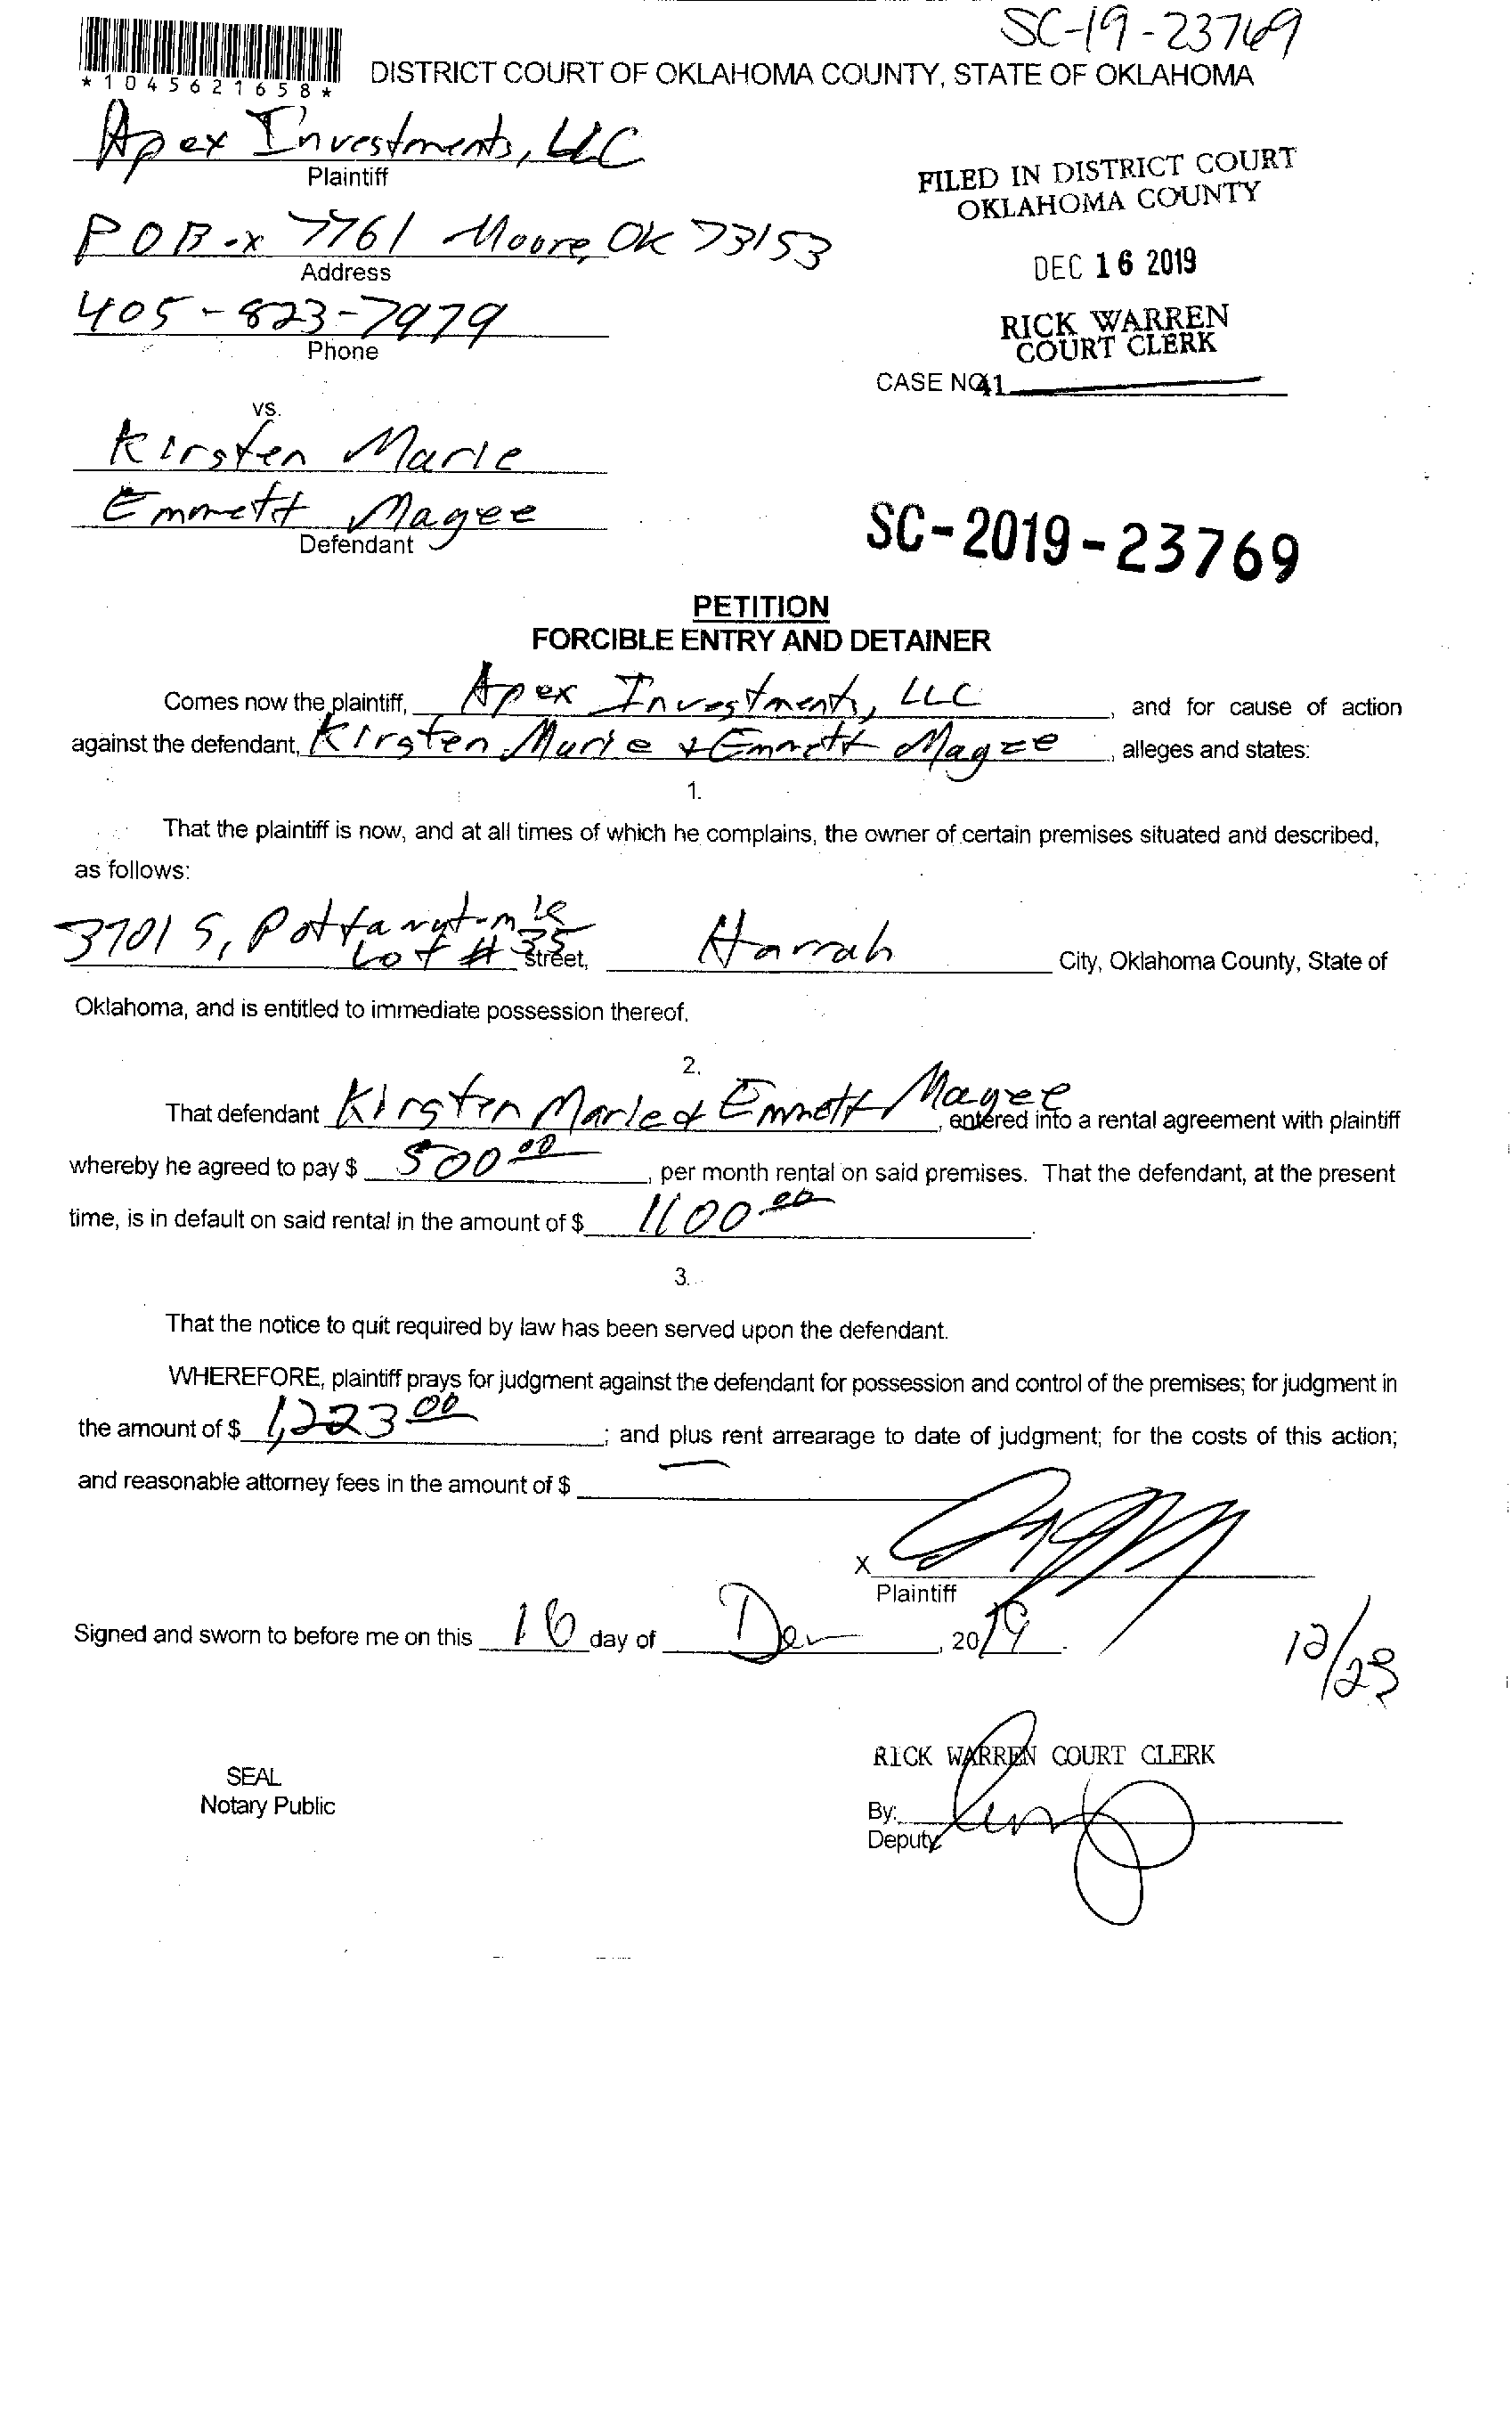 SC-19-23769
*1045621658*
DISTRICT COURT OF OKLAHOMA COUNTY, STATE OF OKLAHOMA
Apex Investments, LLC
Plaintiff
FILED IN DISTRICT COURT
OKLAHOMA COUNTY
P O Box 7761 Moore, OK 73153
Address
DEC 16 2019
405-823-7979
Phone
RICK WARREN
COURT CLERK
CASE NO.
41
vs.
Kirsten Marie
Emmett Magee
Defendant
SC-2019-23769
PETITION
FORCIBLE ENTRY AND DETAINER
Comes now the plaintiff, Apex Investments, LLC, and for cause of action
against the defendant, Kirsten Marie & Emmett Magee, alleges and states:
1.
That the plaintiff is now, and at all times of which he complains, the owner of certain premises situated and described,
as follows:
3701 S, Pottawatomie
Lot # 35 Street, Harrah City, Oklahoma County, State of
Oklahoma, and is entitled to immediate possession thereof.
2.
That defendant Kirsten Marie & Emmett Magee, entered into a rental agreement with plaintiff
whereby he agreed to pay $ 500 00, per month rental on said premises. That the defendant, at the present
time, is in default on said rental in the amount of $ 1100.00.
3.
That the notice to quit required by law has been served upon the defendant.
WHEREFORE, plaintiff prays for judgment against the defendant for possession and control of the premises; for judgment in
the amount of $ 1,223 00; and plus rent arrearage to date of judgment; for the costs of this action;
and reasonable attorney fees in the amount of $
X
Plaintiff
Signed and sworn to before me on this 16 day of Dec, 2019.
12/23
RICK WARREN COURT CLERK
SEAL
Notary Public
By:
Deputy